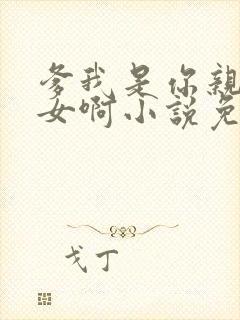 爹我是你親
女啊小說免
戈丁